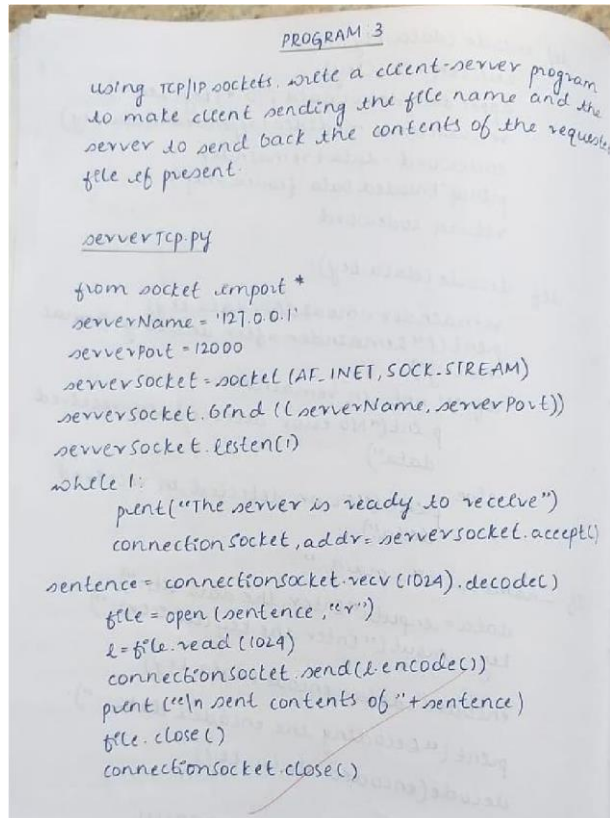 PROGRAM 3
using TCP/IP sockets, write a client-server program
to make client sending the file name and the
server to send back the contents of the requested
file if present.
serverTCP.py
from socket import *
serverName = '127.0.0.1'
serverPort = 12000
serverSocket = socket (AF_INET, SOCK_STREAM)
serverSocket.bind ((serverName, serverPort))
serverSocket.listen(1)
while 1:
print("The server is ready to receive")
connectionSocket, addr = serverSocket.accept()
sentence = connectionSocket.recv (1024).decode()
file = open (sentence, "r")
l = file.read (1024)
connectionSocket.send(l.encode())
print ("\n sent contents of "+sentence)
file.close()
connectionSocket.close()